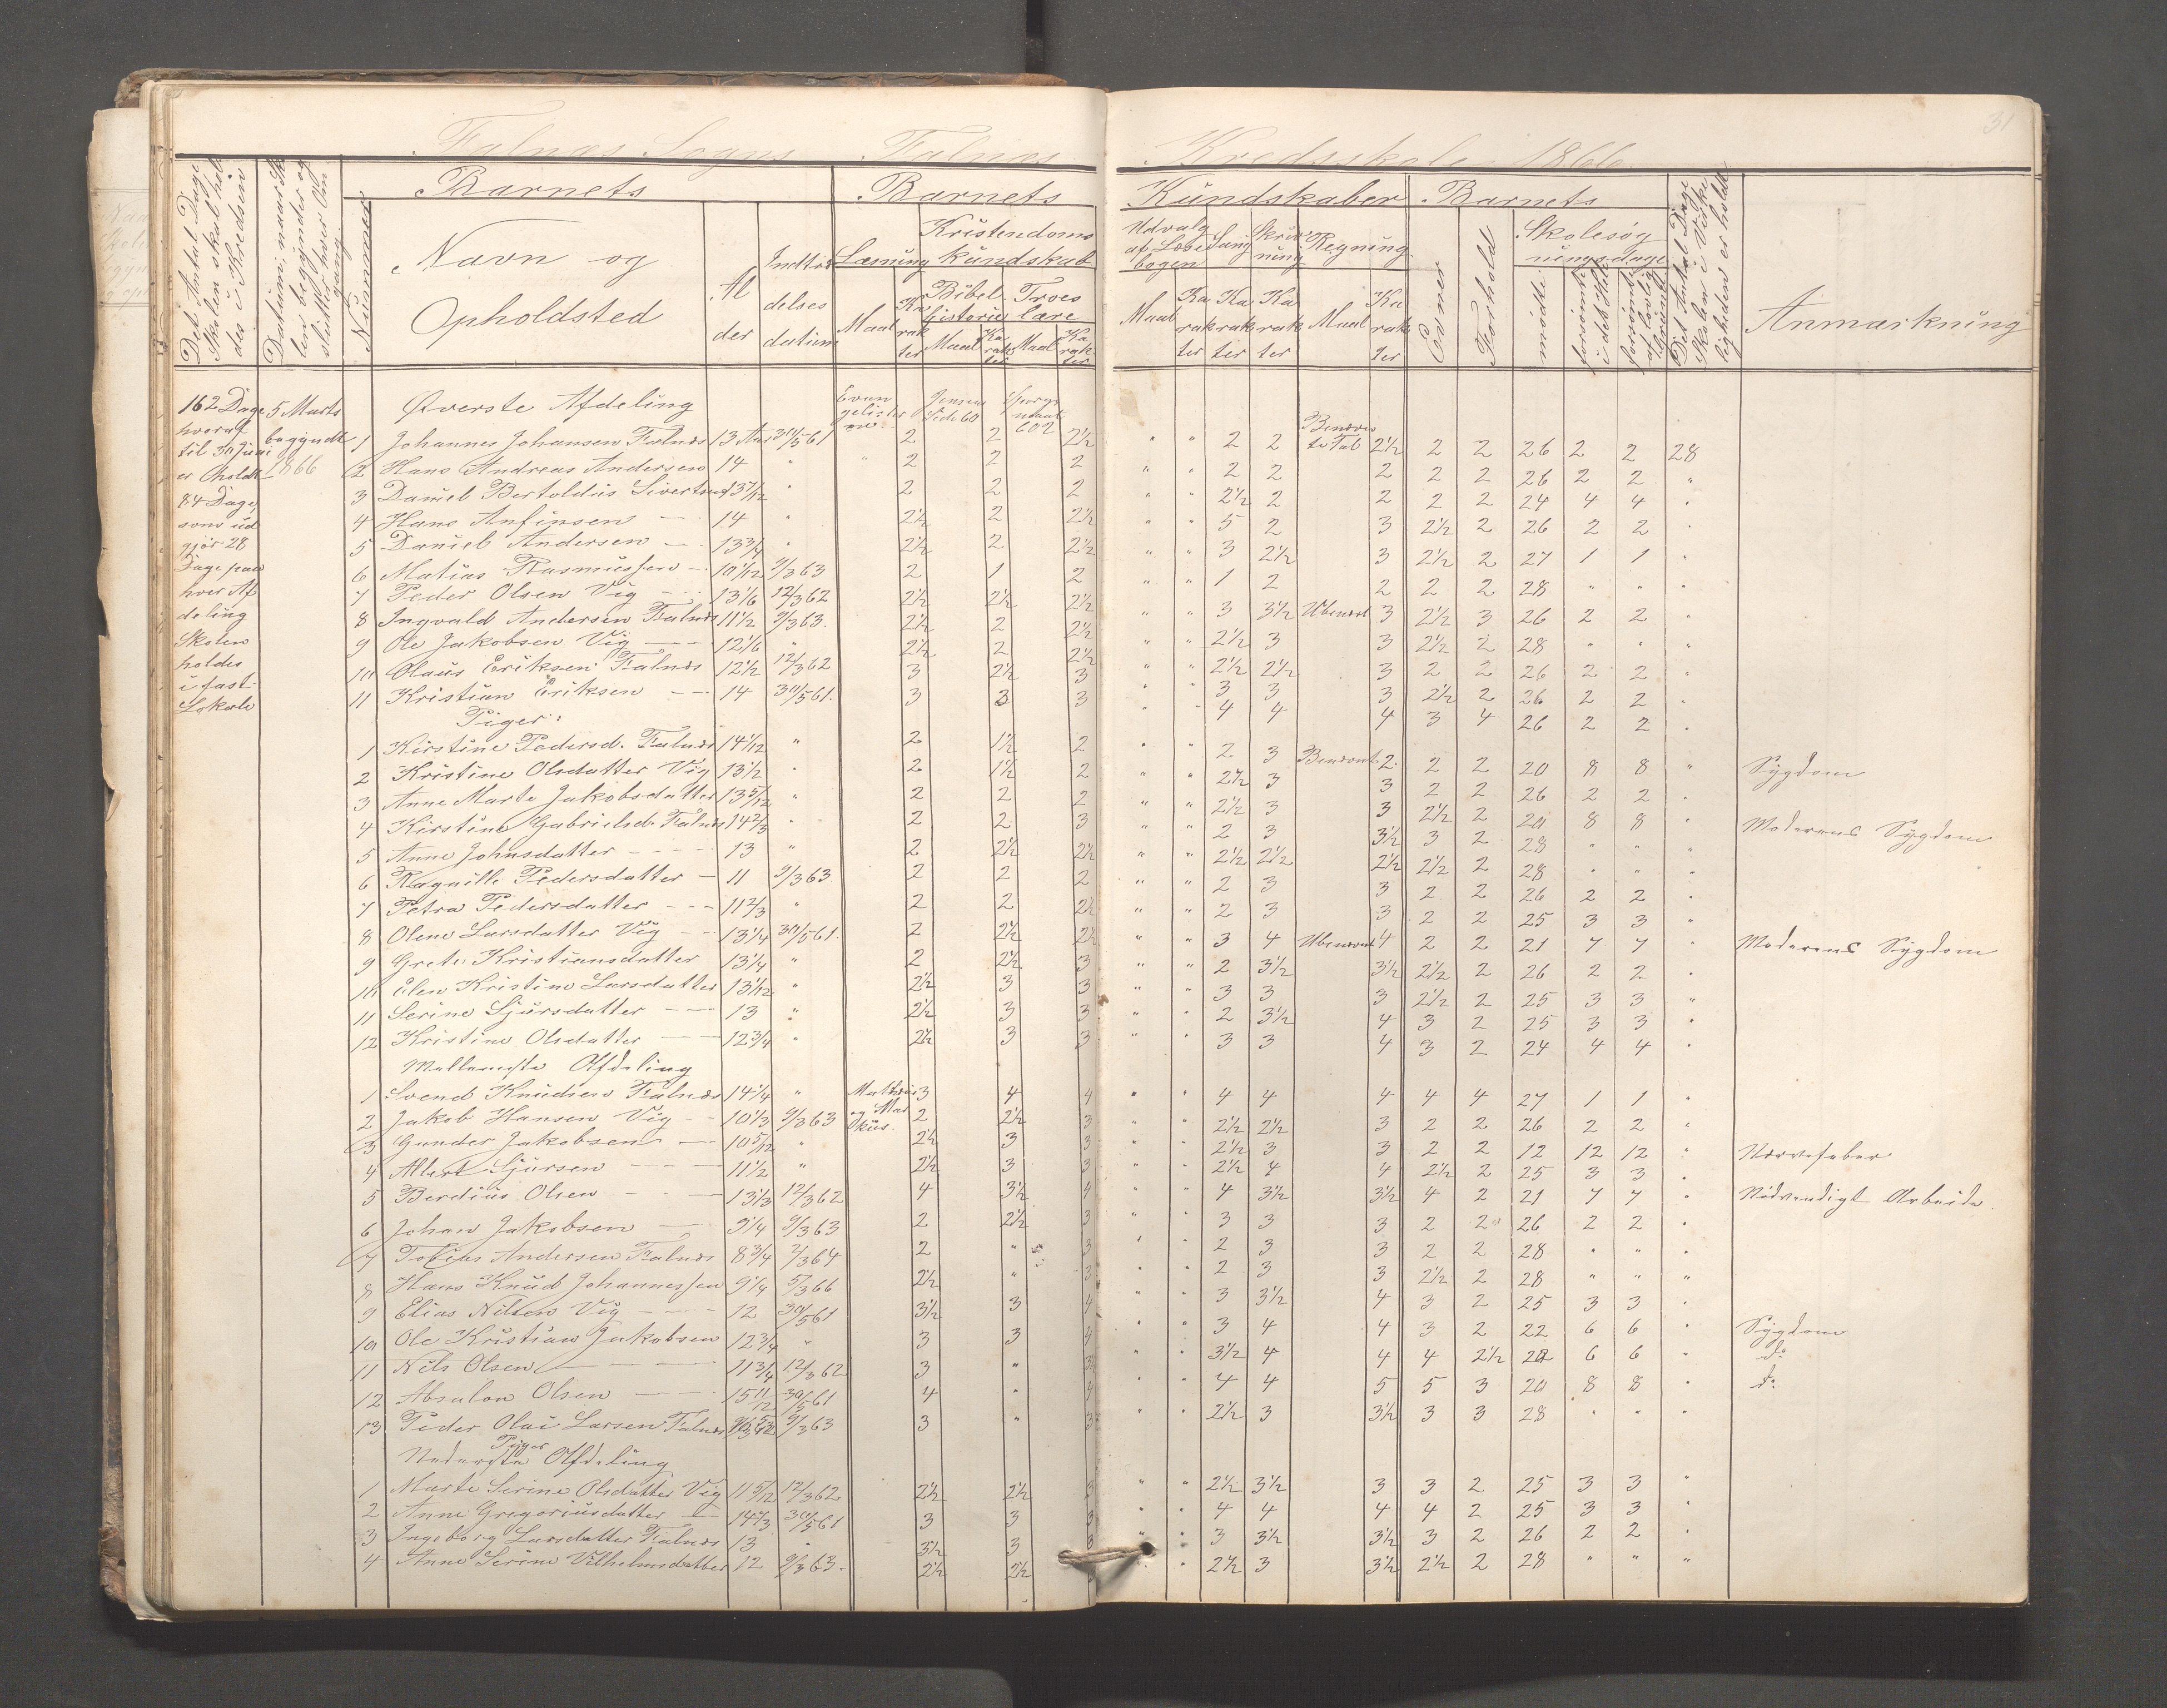 31
Falnæs Sogns Falnæs Kredsskole 1866
Det Antal Dage Skolen skal holdes i Kredsen
Datum, naar Skolen begynder og slutter hver Omgang
Barnets
Nummer
Navn og Opholdsted
Alder
Indtrædelses datum
Barnets Kundskaber
Læsning
Maal
Karakter
Kristendoms kundskab
Bibel historie
Maal
Karakter
Troes lære
Maal
Karakter
Udvalg af Læsebogen
Maal
Karakter
Sang
Karakter
Skrivning
Karakter
Regning
Maal
Karakter
Barnets
Evner
Forhold
Skolesøgningsdage
mødte
forsømte i det Hele
forsømte af lovlig Grund
Det Antal Dage Skolen i Virkeligheden er holdt
Anmærkning
162 Dage
hvoraf
til 30 Juni
er Aholdt
84 Dage,
som ud
gjör 28
Dage paa
hver Af
deling
Skolen
holdes
i fast
Lokale
5 Marts
begyndt
1866
Øverste Afdeling
1 Johannes Johansen Falnæs 13 Aar 30/5 61 2 2 2½ " " 2 2 2½ 2 2 26 2 2 28
2 Hans Andreas Andersen 14 " 2 2 2 " " 2 2 2 2 2 26 2 2 "
3 Daniel Bertoldus Sivertsen 13 7/12 " 2 2 2 " " 2½ 2 2 2 2 24 4 4 "
4 Hans Anfinsen 14 " 2½ 2 2½ " " 5 2 3 2½ 2 26 2 2 "
5 Daniel Andersen 13¾ " 2½ 2 2½ " " 3 2½ 3 2½ 2 27 1 1 "
6 Matias Rasmussen 10 1/12 9/3 63 2 1 2 " " 1 2 2 2 2 28 " " "
7 Peder Olsen Vig 13 1/6 12/3 62 2½ 2½ 2½ " " 3 3½ Ubenævt 3 2½ 3 26 2 2 "
8 Ingvald Andersen Falnæs 11½ 9/3 63. 2½ 2 2½ " " 2½ 3 3 2½ 2 28 " " "
9 Ole Jakobsen Vig 12 1/6 2½ 2 2½ " " 2½ 2½ 3 2 2 26 2 2 "
10 Olaus Eriksen Falnæs 12½ 12/3 62 3 2½ 3 " " 3 3 3 2½ 2 26 2 2 "
11 Kristian Eriksen 14 30/5 61. 3 3 3 " " 4 4 4 3 4 26 2 2 "
Piger:
1 Kirstine Pedersd. Falnæs 14 1/12 " 2 1½ 2 " " 2 3 Benævnt 2 2 2 20 8 8 " Sygdom
2 Kristine Olsdatter Vig 13½ " 2 1½ 2 " " 2½ 3 3 2 2 26 2 2 "
3 Anne Marte Jakobsdatter 13 5/12 " 2 2 2 " " 2½ 3 3 2½ 2 20 8 8 " Moderens Sygdom
4 Kirstine Gabrielsd. Falnæs 14 2/3 " 2 2 3 " " 2 3 3½ 3 2 28 " " "
5 Anne Johnsdatter 13 " 2 2½ 2½ " " 2½ 2½ 2½ 2½ 2 28 " " "
6 Ragnille Pedersdatter 11 9/3 63. 2 2 2 " " 2 3 3 2 2 26 2 2 "
7 Petra Pedersdatter 11 2/3 " 2 2 2½ " " 2 3 3 2 2 25 3 3 "
8 Olene Larsdatter Vig 13¼ 30/5 61. 2 2½ 2½ " " 3 4 Ubenævnt 4 2 2 21 7 7 " Moderens Sygdom
9 Grete Kristiansdatter 13¼ " 2 2½ 3 " " 2 3½ 3½ 2½ 2 26 2 2 "
10 Elen Kristine Larsdatter 13 1/12 " 2½ 3 3 " " 3 3 3 2½ 2 25 3 3 "
11 Serine Sjursdatter 13 " 2½ 3 3 " " 2 3½ 4 3 2 25 3 3 "
12 Kristine Olsdatter 12¾ " 2½ 3 3 " " 3 3 4 3 2 24 4 4 "
Mellemste Afdeling
1 Svend Knudsen Falnæs 14¼ " Matthæus 3 4 4 " " 4 4 4 4 4 27 1 1 "
2 Jakob Hansen Vig 10 1/3 9/3 63 og Markus. 2 2½ 3 " " 2½ 2½ 3 2 2 26 2 2 "
3 Gunder Jakobsen 10 5/12 " 2½ 3 3 " " 2½ 3 3 2 2 12 12 12 " Nervefeber
4 Albert Sjursen 11½ " 2½ 3 3 " " 2½ 4 4 2½ 2 25 3 3 "
5 Berdius Olsen 13 1/3 12/3 62 4 3½ 4 " " 4 3½ 3½ 4 2 21 7 7 " Nødvendigt Arbeide.
6 Johan Jakobsen 9¼ 9/3 63 2 2½ 3 " " 3 3 3 2 2 26 2 2 "
7 Tobias Andersen Falnæs 8¾ 7/3 64 2 " 3 " " 2 3 3 2 2 28 " " "
8 Hans Knud Johannessen 9¼ 5/3 66 2½ " 3 " " 2 3 3 2½ 2 28 " " "
9 Elias Nilsen Vig 12 30/5 61 3½ 3 4 " " 3 3½ 4 3 2 25 3 3 "
10 Ole Kristian Jakobsen 12¾ " 3 3 4 " " 3 4 4 3 2 22 6 6 " Sygdom
11 Nils Olsen 11¾ 12/3 62 3 " 3½ " " 3½ 4 4 4 2½ 22 6 6 " do
12 Absalon Olsen 15 11/12 30/5 61 4 " 4 " " 4 4 5 5 3 20 8 8 " do
13 Peder Olai Larsen Falnæs 9/3 63 3 " 3 " " 2½ 3 3½ 3 3 28 " " "
Piger
Nederste Afdeling
1 Marte Serine Olsdatter Vig 11 5/12 12/3 62 2½ 2½ 3 " " 2½ 3½ 3 3 2 25 3 3 "
2 Anne Gregoriusdatter 14 2/3 30/5 61 3 3 3 " " 4 4 4 4 2 25 3 3 "
3 Ingeborg Larsdatter Falnæs 13 " 3½ 3 3 " " 3 3½ 3½ 3 2 26 2 2 "
4 Anne Serine Vilhelmsdatter 12 9/3 63. 2½ 2½ " " 2½ 3 3½ 2½ 2 28 " " "